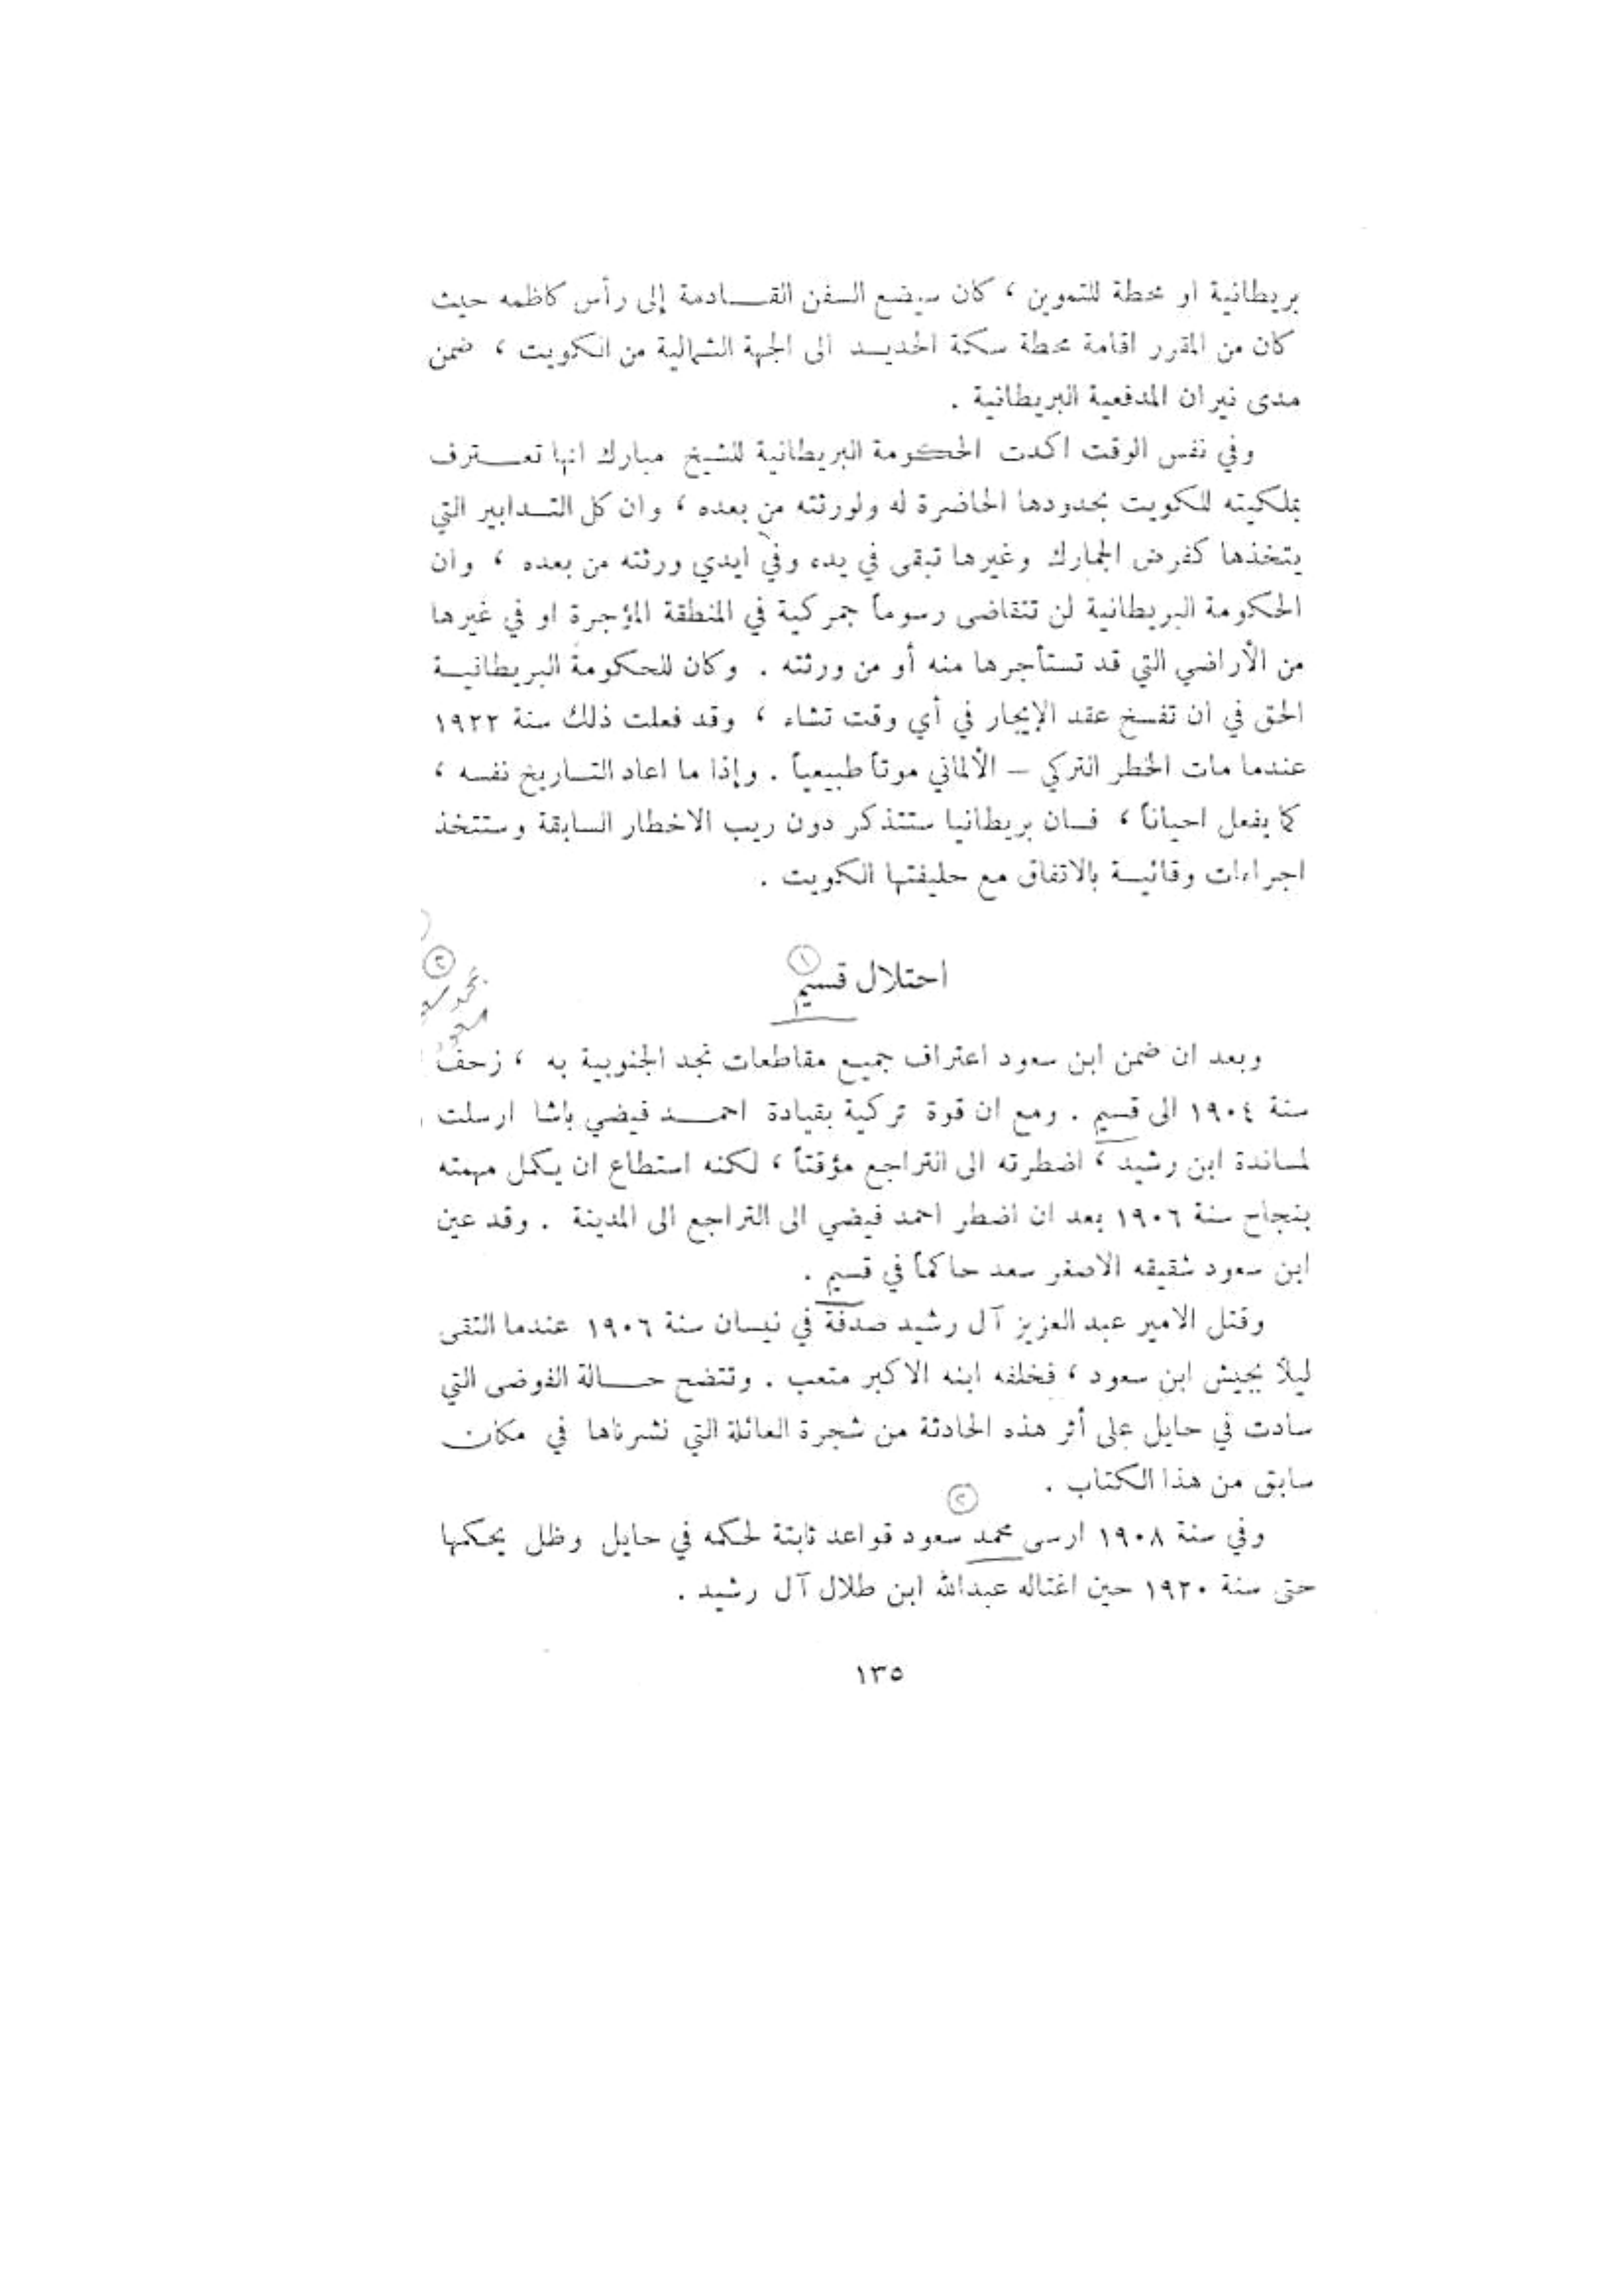 بريطانية او محطة للتموين ، كان سيضع السفن القادمة إلى رأس كاظمه حيث
كان من المقرر اقامة محطة سكة الحديد الى الجهة الشمالية من الكويت ، ضمن
مدى نيران المدفعية البريطانية .
وفي نفس الوقت اكدت الحكومة البريطانية للشيخ مبارك انها تعترف
بملكيته للكويت بحدودها الحاضرة له ولورثته من بعده ، وان كل التدابير التي
يتخذها كفرض الجمارك وغيرها تبقى في يده وفي ايدي ورثته من بعده ، وان
الحكومة البريطانية لن تتقاضى رسوماً جمركية في المنطقة المؤجرة او في غيرها
من الأراضي التي قد تستأجرها منه أو من ورثته . وكان للحكومة البريطانية
الحق في ان تفسخ عقد الإيجار في أي وقت تشاء ، وقد فعلت ذلك سنة ١٩٢٢
عندما مات الخطر التركي – الألماني موتاً طبيعياً . وإذا ما اعاد التاريخ نفسه ،
كما يفعل احياناً ، فان بريطانيا ستتذكر دون ريب الاخطار السابقة وستتخذ
اجراءات وقائية بالاتفاق مع حليفتها الكويت .
١
٢
احتلال قسيم
محمد
وبعد ان ضمن ابن سعود اعتراف جميع مقاطعات نجد الجنوبية به ، زحف
سنة ١٩٠٤ الى قسيم . ومع ان قوة تركية بقيادة احمد فيضي باشا ارسلت
لمساندة ابن رشيد ، اضطرته الى التراجع مؤقتاً ، لكنه استطاع ان يكمل مهمته
بنجاح سنة ١٩٠٦ بعد ان اضطر احمد فيضي الى التراجع الى المدينة . وقد عين
ابن سعود شقيقه الاصغر سعد حاكماً في قسيم .
وقتل الامير عبد العزيز آل رشيد صدفة في نيسان سنة ١٩٠٦ عندما التقى
ليلاً بجيش ابن سعود ، فخلفه ابنه الاكبر متعب . وتتضح حالة الفوضى التي
سادت في حايل على أثر هذه الحادثة من شجرة العائلة التي نشرناها في مكان
سابق من هذا الكتاب .
٢
وفي سنة ١٩٠٨ ارسى محمد سعود قواعد ثابتة لحكمه في حايل وظل يحكمها
حتى سنة ١٩٢٠ حين اغتاله عبدالله ابن طلال آل رشيد .
١٣٥